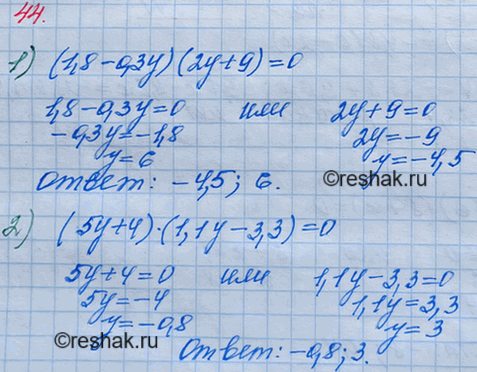 44.
1) (1,8-0,3y)(2y+9)=0
1,8-0,3y=0 или 2y+9=0
-0,3y=-1,8 2y=-9
y=6 y=-4,5
Ответ: -4,5; 6.
©reshak.ru
2) (5y+4)·(1,1y-3,3)=0
5y+4=0 или 1,1y-3,3=0
5y=-4 1,1y=3,3
y=-0,8 y=3
©reshak.ru
Ответ: -0,8; 3.